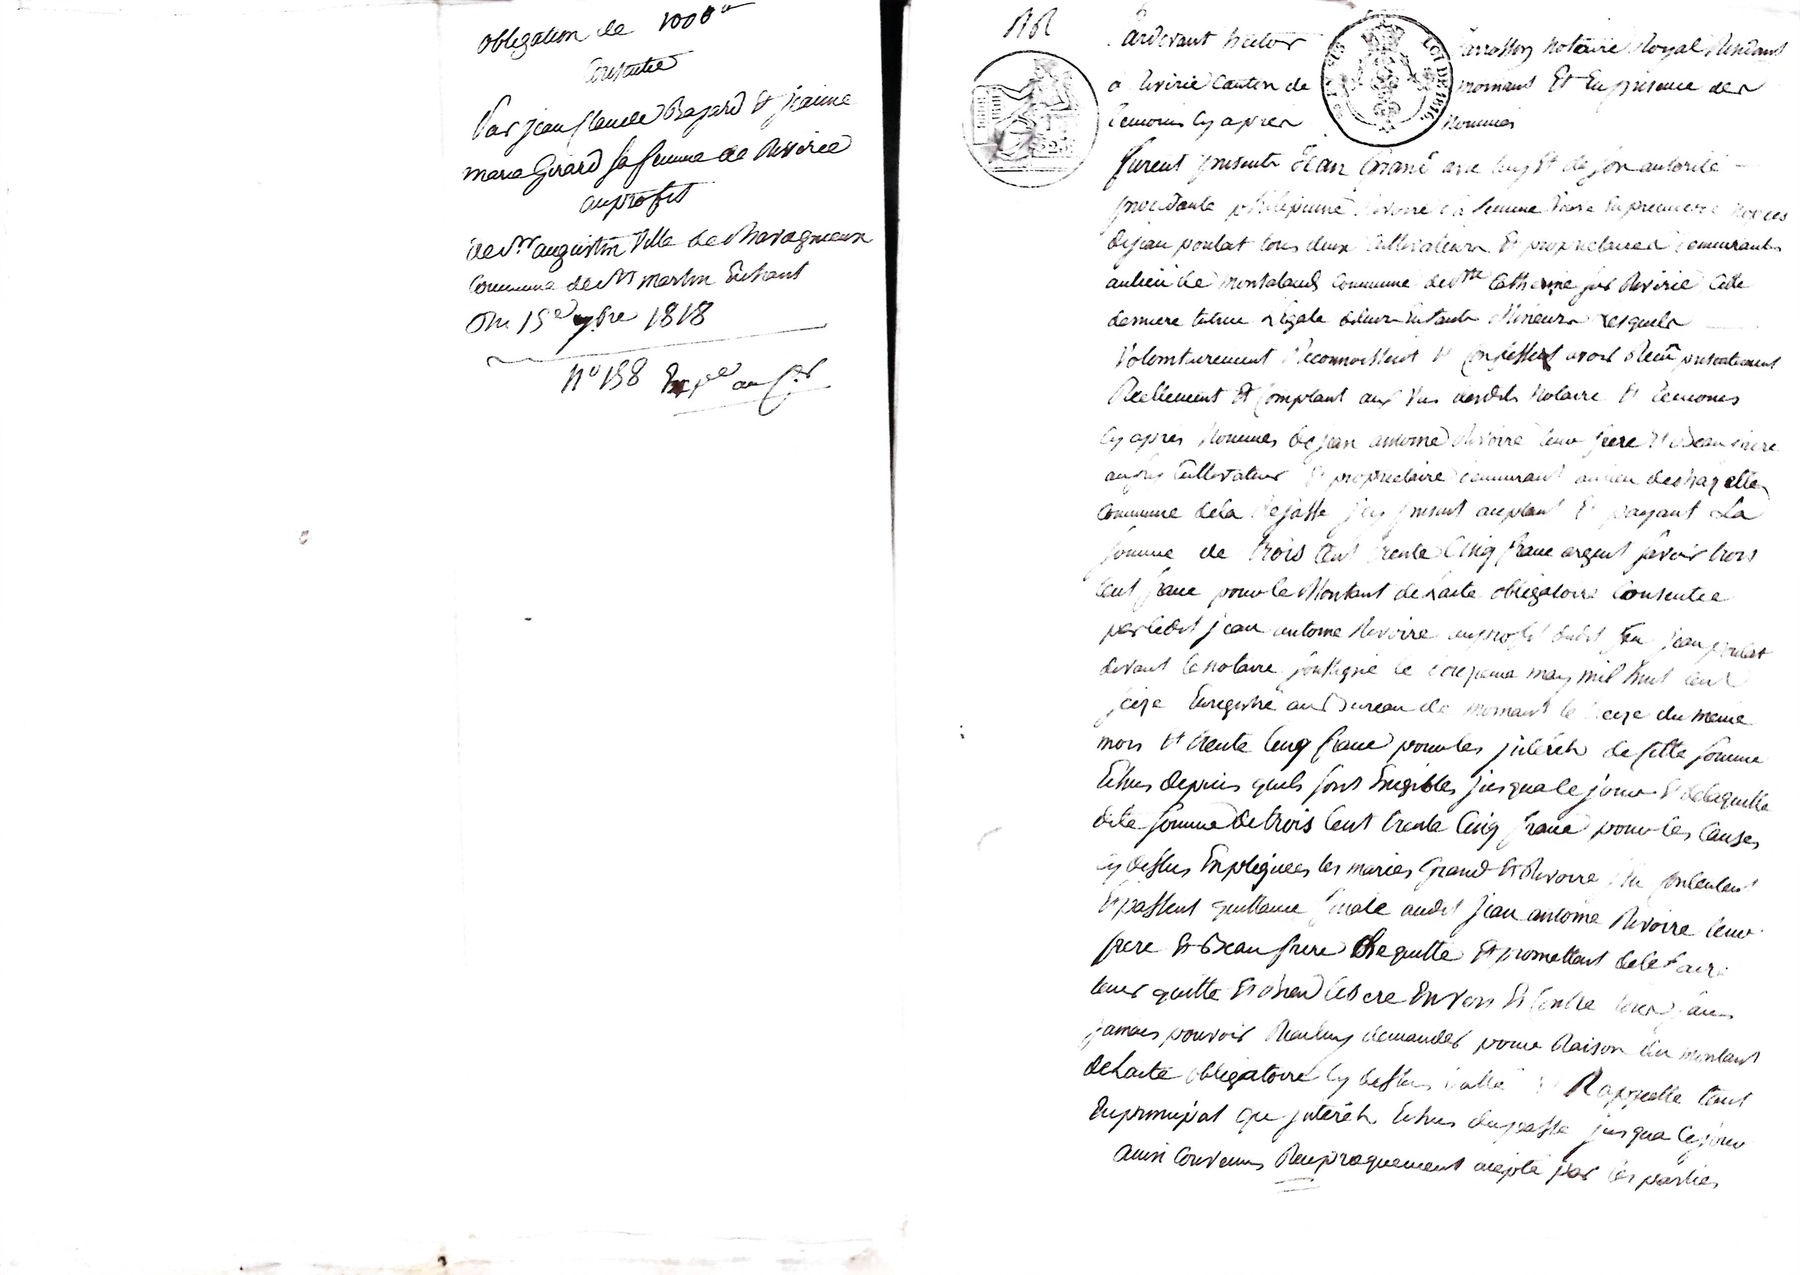 obligation de 1000 fr
Consentie
Par jean Claude Bajard Et jeanne
marie Girard sa femme de Riverie
auprofit
de Sr augustin Ville de Chavagneux
Commune de St martin Enhaut
Du 15e 7bre 1818
No 158 Exp
Pardevant hector notaire Royal Residant
a Riverie Canton de mornant Et En presence des
temoins Cy apres Nommes
furent presents Jean Grand avec luy Et de son autorité
procedante Rivoire sa femme veuve En premieres noces
dejean poulat tous deux Cultivateurs Et proprietaires demeurants
aulieu de montaland Commune de Ste Catherine sur Riverie Cette
derniere tutrice Legale deleurs Enfants Mineurs Lesquels
Volontairement Reconnoissent Et Confessent avoir Recu presentement
Reellement Et Comptant aux vus desdits Notaire Et temoins
Cy aprés Nommes de jean antoine Rivoire leur frere Et Beau frere
aussy Cultivateur Et proprietaire demeurant aulieu de
Commune dela jcy present aceptant Et payant La
somme de trois Cent trente Cinq franc argent savoir trois
Cent franc pour le Montant de Lacte obligatoire Consentie
par ledit jean antoine Rivoire auprofit dudit feu jean poulat
devant le Notaire soussigné le may mil huit Cent
seize Enregistré au Bureau de mornant le seize du meme
mois Et trente Cinq franc pour les jnteréts de Cette somme
Echus depuis quels sont Exigibles jusqua le jour Et delaquelle
dite somme de trois Cent trente Cinq franc pour les Causes
Cy dessus Expliquées les mariés Grand Et Rivoire Contentent
Et passent quittance finale audit jean antoine Rivoire leur
frere Et Beau frere Le quitte Et promettant dele faire
tenir quitte Et Libere Envers Et Contre tous sans
jamais pouvoir Rien luy demander pour Raison du montant
de Lacte obligatoire Cy dessus datté Et Rappellé tant
En principal que jnteréts Echus dupassé jusqua Cejour
ainsi Convenu Reciproquement accepté par les parties